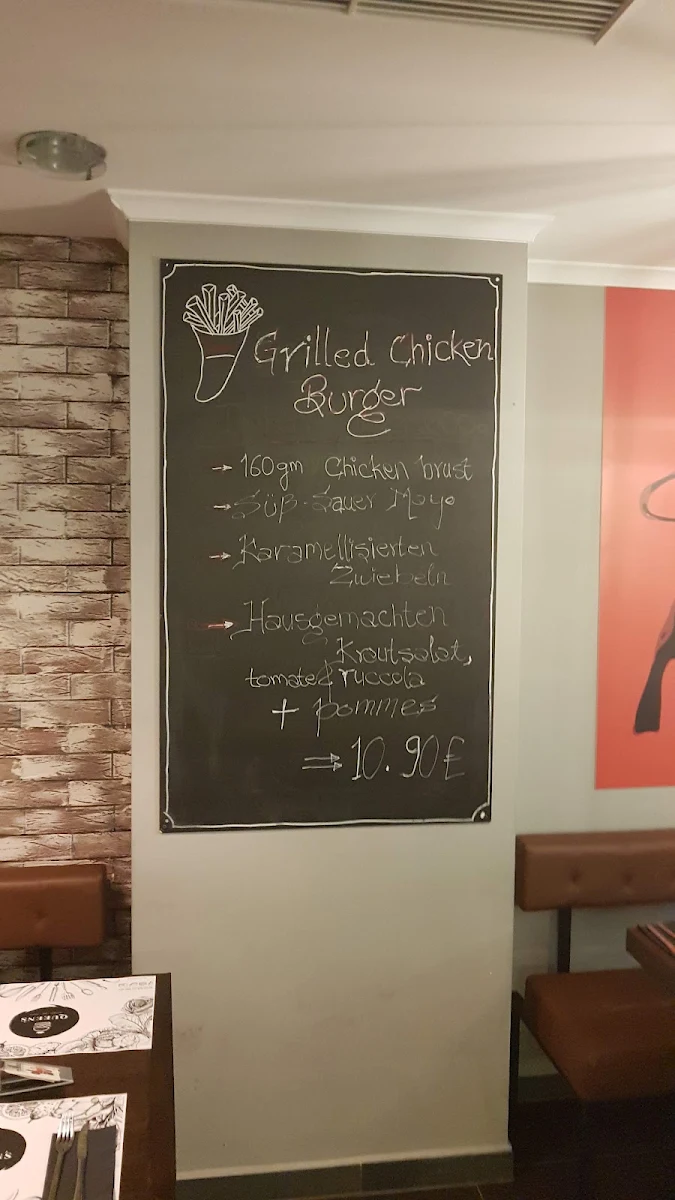 Grilled Chicken
Burger
→ 160gm Chicken brust
→ Süß-Sauer Mayo
→ Karamellisierten
Zwiebeln
→ Hausgemachten
Krautsalat,
tomate & ruccola
+ pommes
⇒ 10.90€
QUEENS